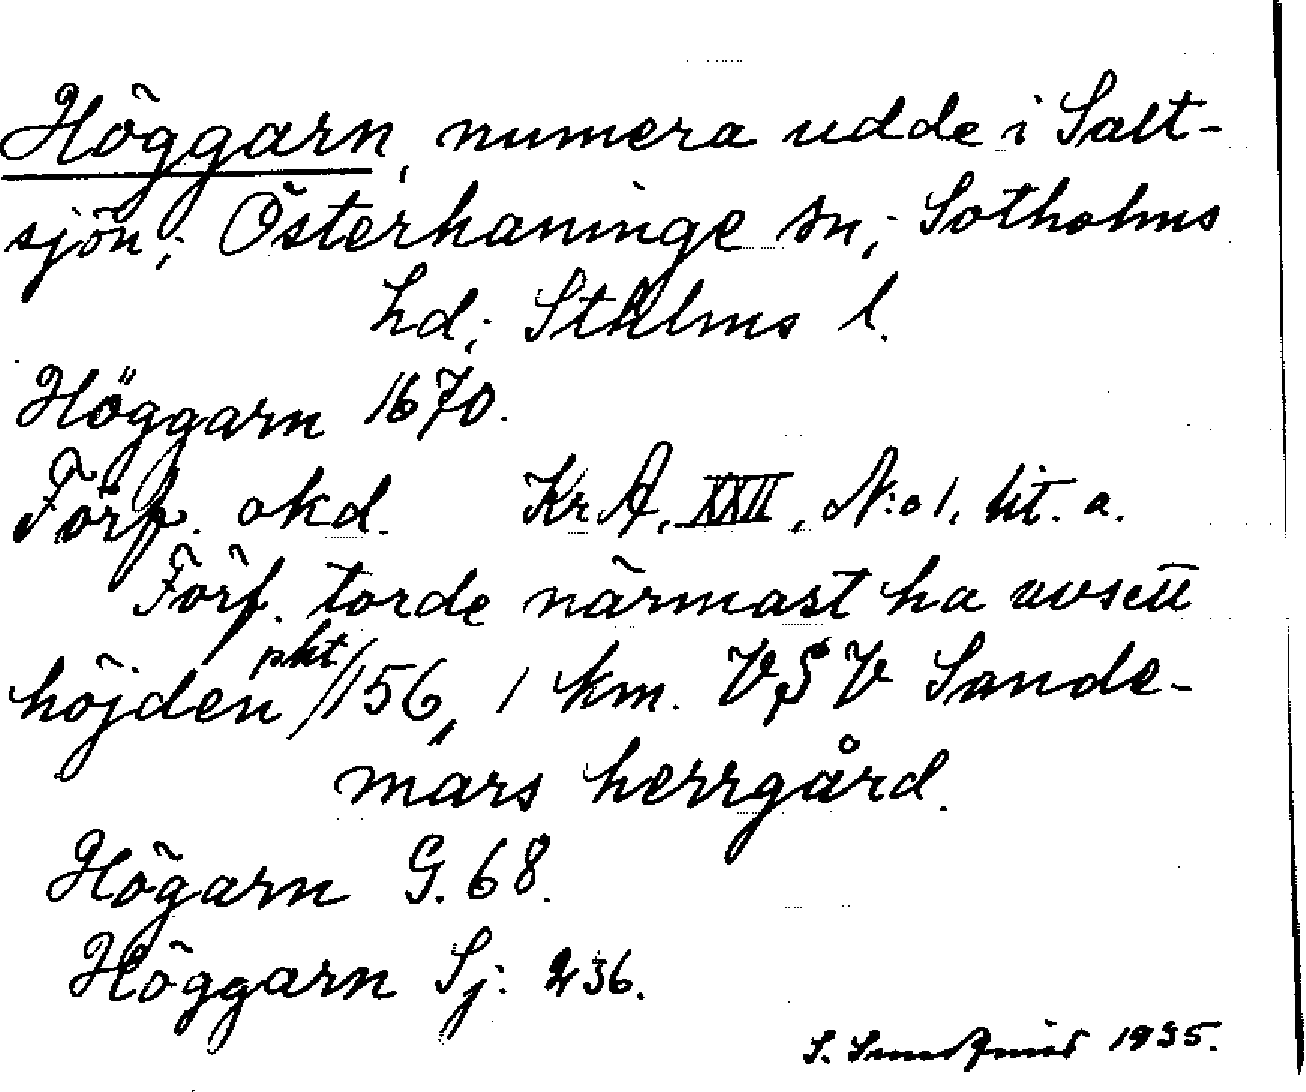 Höggarn, numera udde i Salt-
sjön; Österhaninge sn; Sotholms
hd; Sthlms l.
Höggarn 1670.
Förf. okd. Kr A, XXII, N:o 1, lit. a.
Förf. torde närmast ha avsett
höjden pkt 156, 1 km. VSV Sande-
mars herrgård.
Högarn G. 68.
Höggarn Sj: 236.
S. 1935.